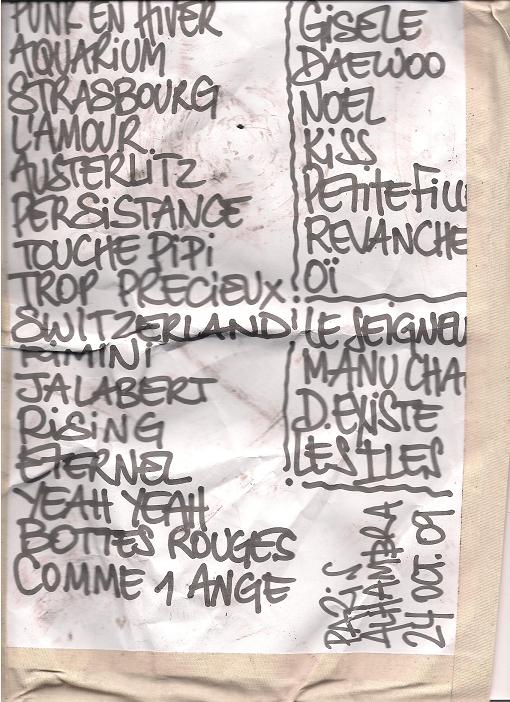 PUNK EN HIVER
AQUARIUM
STRASBOURG
L'AMOUR
AUSTERLITZ
PERSISTANCE
TOUCHE PIPI
TROP PRECIEUX
SWITZERLAND
RIMINI
JALABERT
RISING
ETERNEL
YEAH YEAH
BOTTES ROUGES
COMME 1 ANGE
GISELE
DAEWOO
NOEL
KISS
PETITE FILL
REVANCHE
OÏ
LE SEIGNEU
MANU CHA
D. EXISTE
LES ILES
PARIS
ALHAMBRA
24 OCT. 09